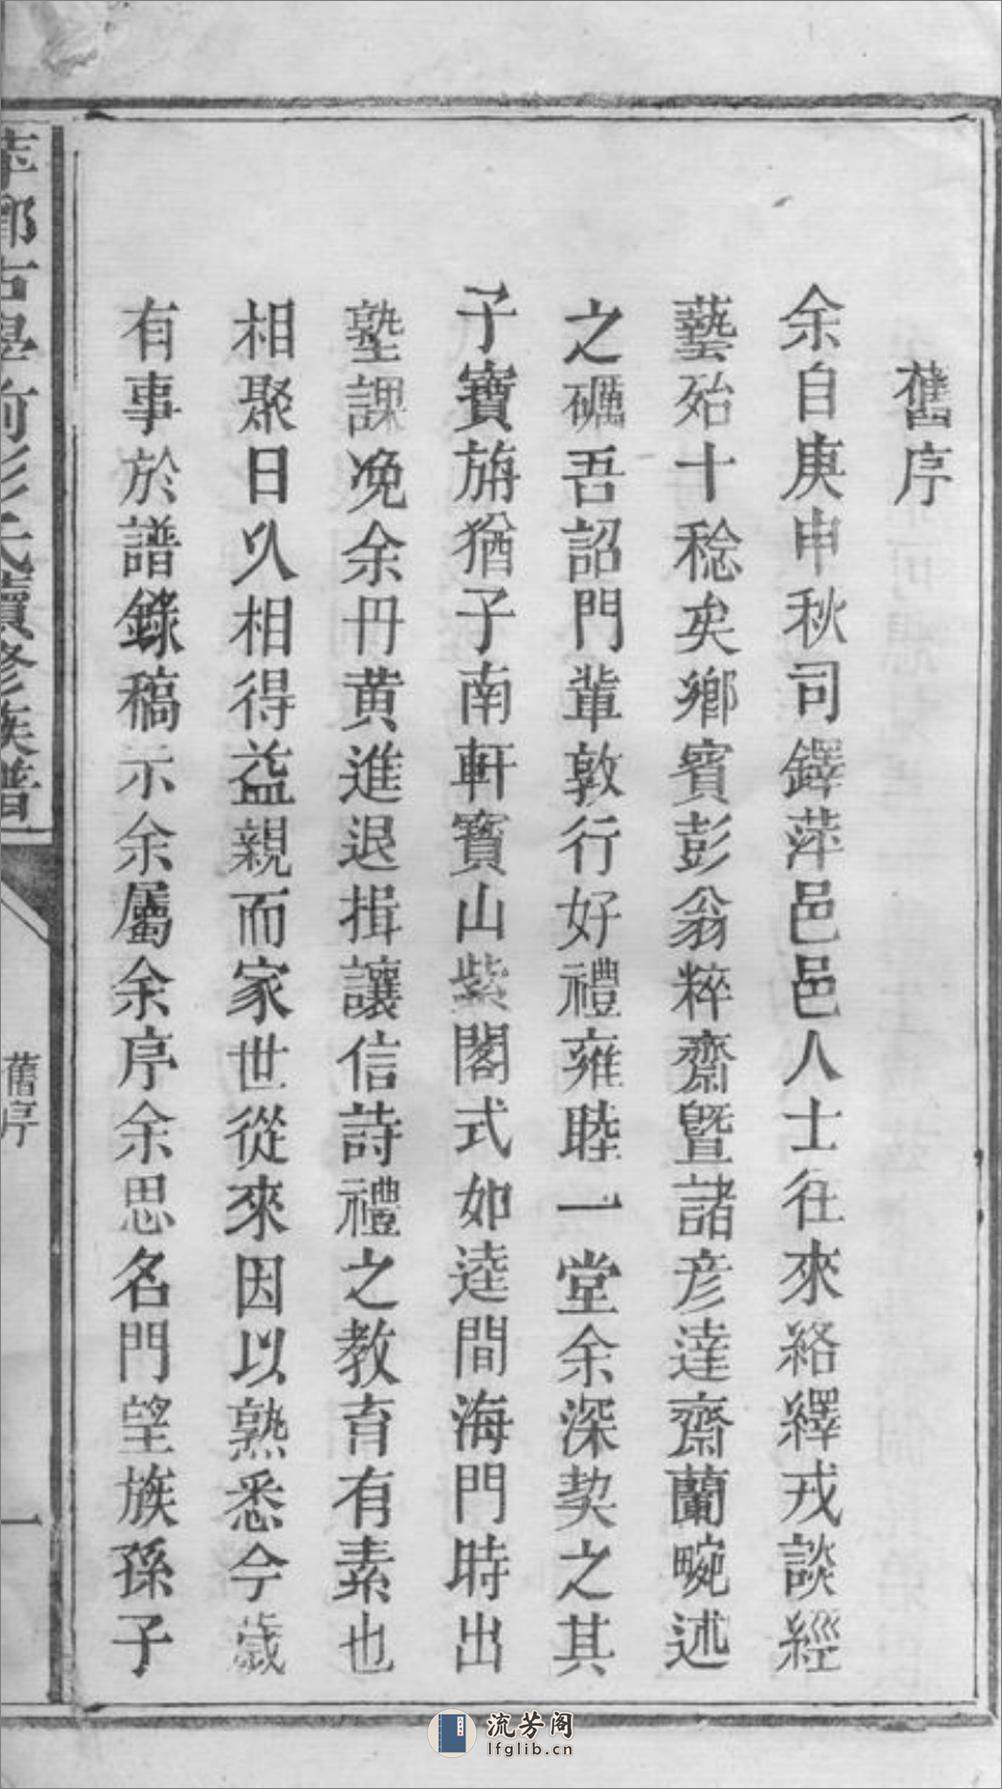 舊序
余自庚申秋司鐸萍邑邑人士往來絡繹戎談經
藝殆十稔矣鄉賓彭翁粹齋暨諸彦達齋蘭畹述
之礪吾詔門輩敦行好禮雍睦一堂余深契之其
子寶旃猶子南軒寶山紫閣式如逵間海門時出
塾課俛余丹黄進退揖讓信詩禮之教育有素也
相聚日久相得益親而家世從來因以熟悉今歲
有事於譜錄稿示余屬余序余思名門望族孫子
鄉古學前彭氏續修族譜
舊序
一
流芳阁
lfglib.cn